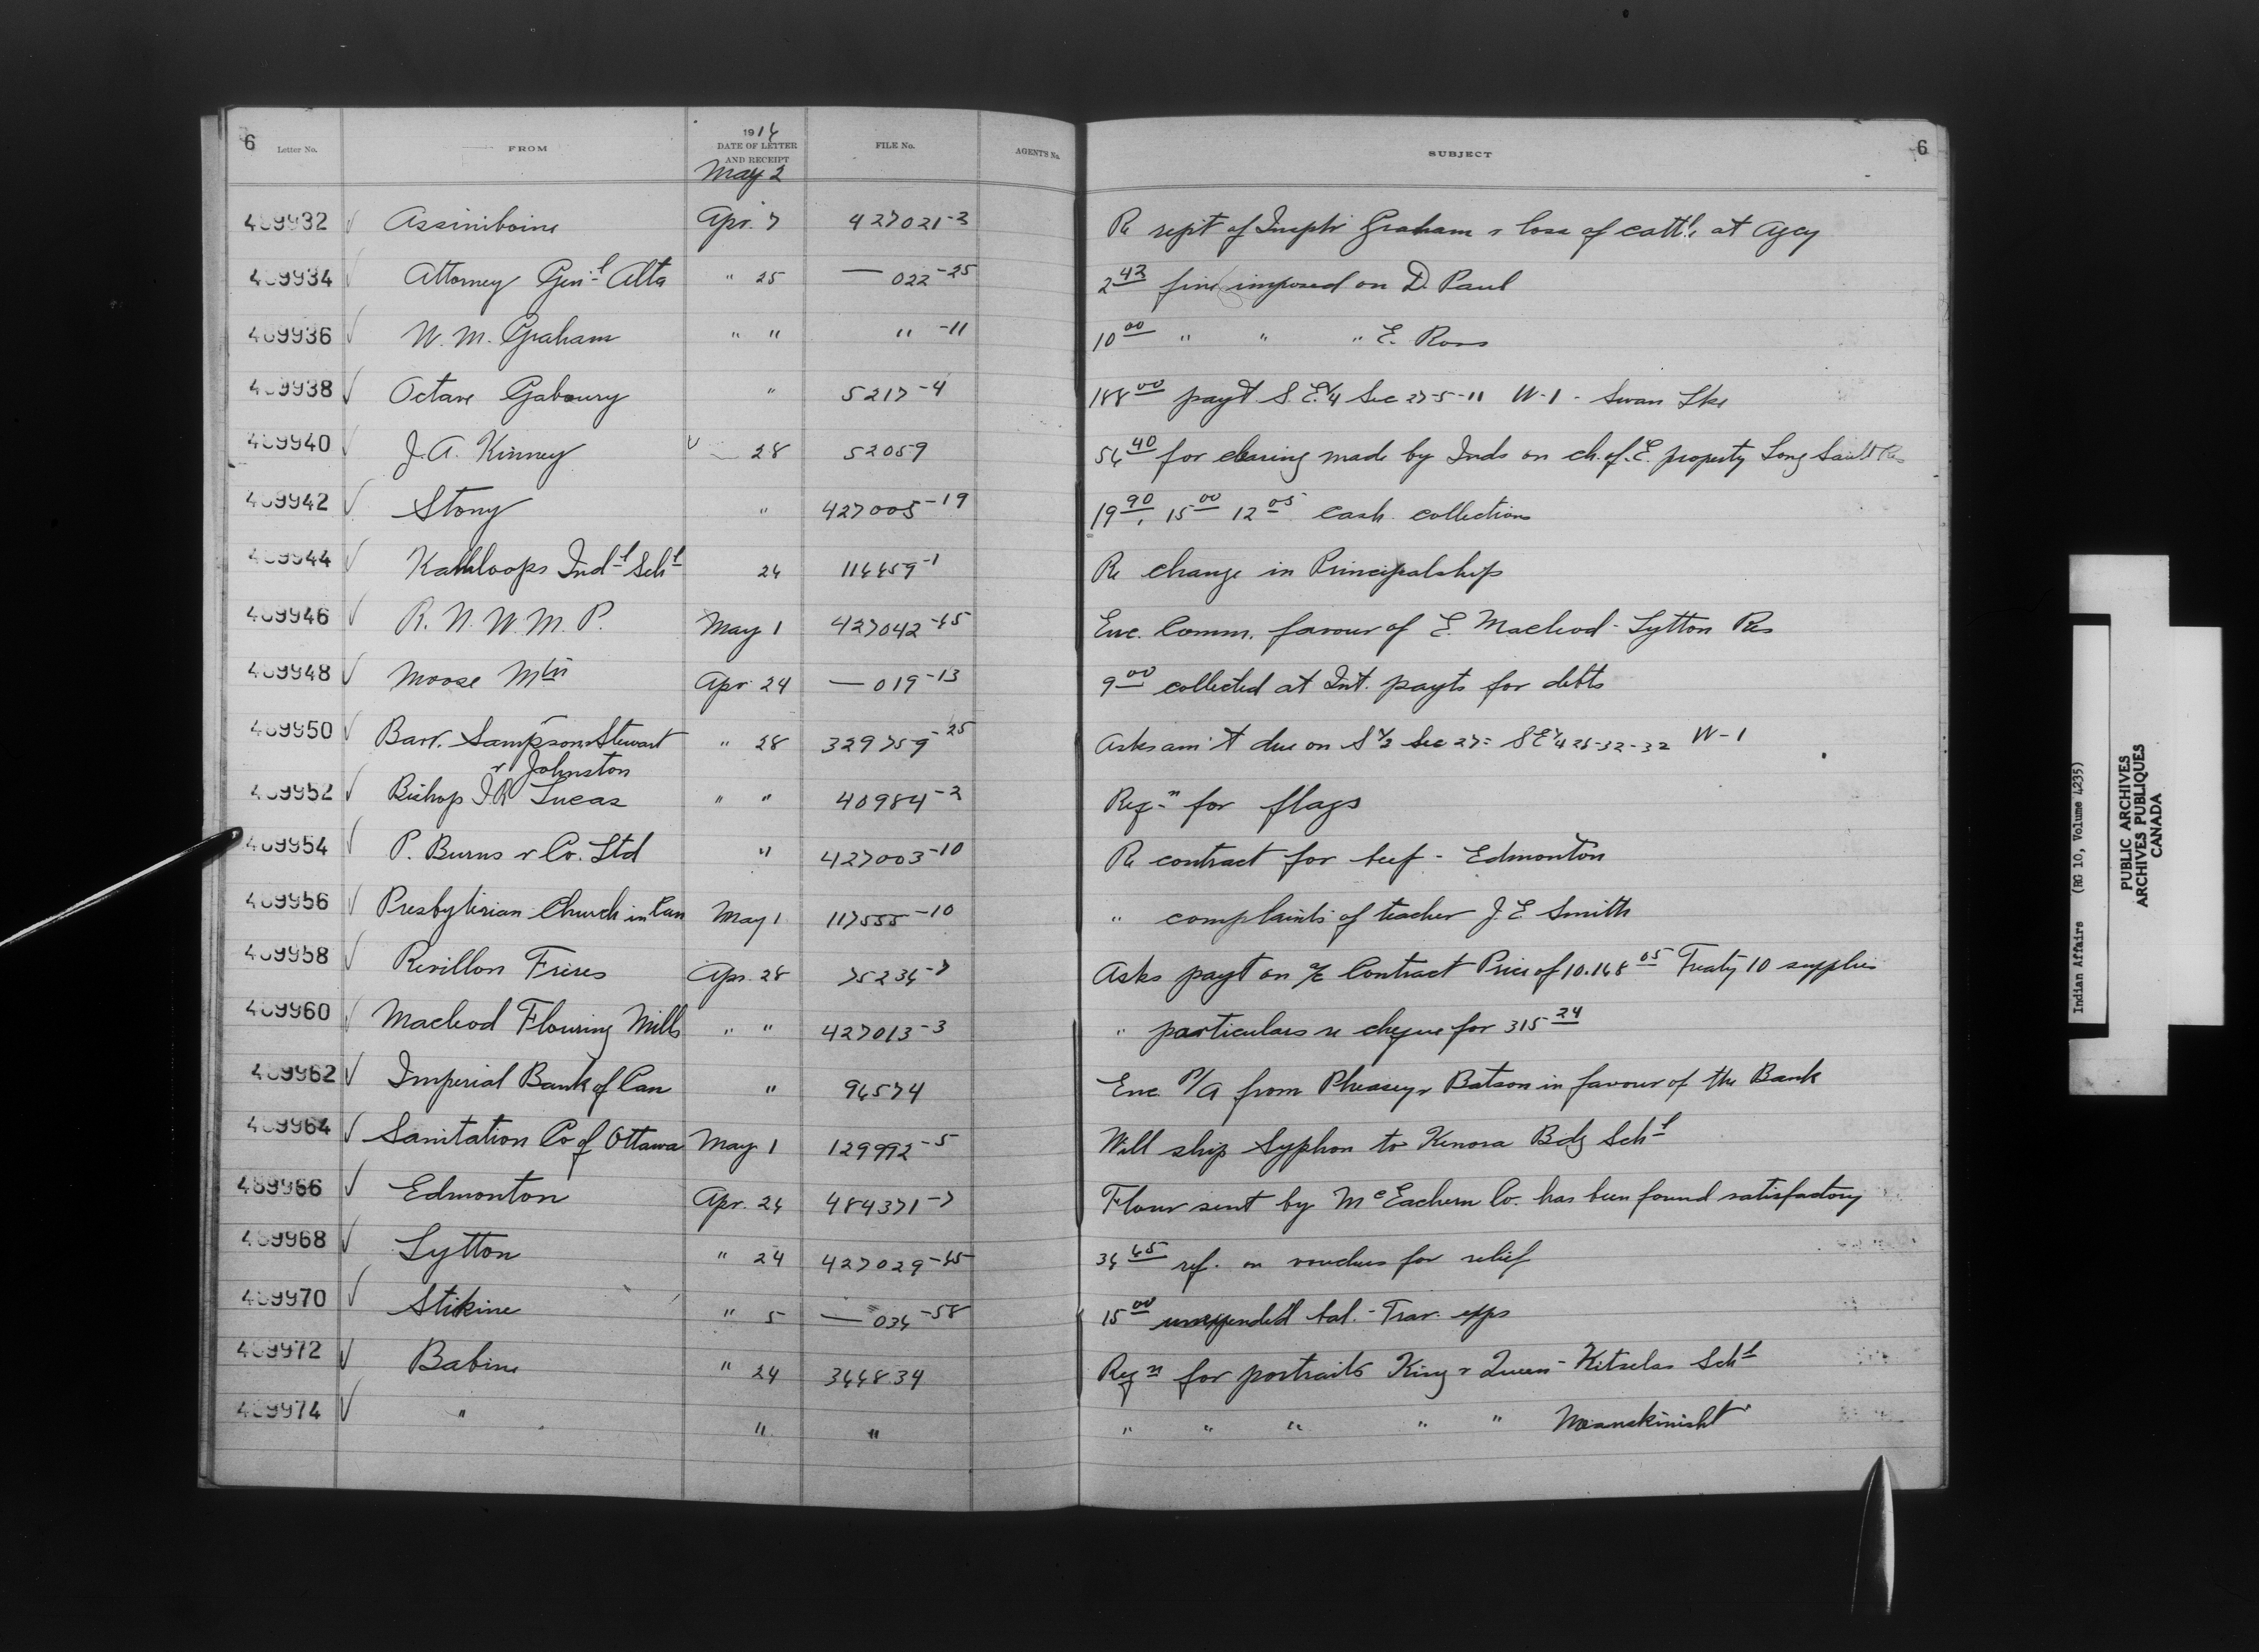 6 Letter No. FROM 1914 DATE OF LETTER AND RECEIPT FILE No. AGENT'S No. SUBJECT 6
May 2
489932 ✓ Assiniboine Apr. 7 427021-3 Re rep't of Insptr Graham r loss of cattle at Agcy
489934 ✓ Attorney Gen'l Alta " 25 — 022-25 2 42 fine imposed on D. Paul
489936 ✓ W. M. Graham " " " -11 10 00 " " " E. Ross
489938 ✓ Octave Gaboury " 5217-4 188 00 pay't S.E.1/4 Sec 27-5-11 W-1 - Swan Lke
489940 ✓ J. A. Kinney ✓ 28 52059 54 40 for clearing made by Inds on ch. of. E. property Long Sault Res
489942 ✓ Stony " 427005-19 19 90, 15 00 12 05 cash collections
489944 ✓ Kamloops Ind'l Sch'l 24 114459-1 Re change in Principalship
489946 ✓ R. N. W. M. P. May 1 427042-45 Enc. Comm. favour of E. Macleod - Lytton Res
489948 ✓ Moose Mtn Apr 24 — 019-13 9 00 collected at Int. payts for debts
489950 ✓ Barr. Sampson Stewart " 28 329759-25 Asks am't due on S 1/2 Sec 27= SE 1/4 25-32-32 W-1
r Johnston
489952 ✓ Bishop J R Lucas " " 40984-2 Reqn for flags
489954 ✓ P. Burns r Co. Ltd " 427003-10 Re contract for beef - Edmonton
489956 ✓ Presbyterian Church in Can May 1 117555-10 " complaints of teacher J. E. Smith
489958 ✓ Revillon Freres Apr. 28 75234-7 Asks payt on a/c Contract Price of 10.148 05 Treaty 10 supplies
489960 ✓ Macleod Flouring Mills " " 427013-3 " particulars re cheque for 315 24
489962 ✓ Imperial Bank of Can " 94574 Enc. P/A from Pheasey r Batson in favour of the Bank
489964 ✓ Sanitation Co of Ottawa May 1 129992-5 Will ship Syphon to Kenora Bdg Sch'l
489966 ✓ Edmonton Apr. 24 484371-7 Flour sent by McEachern Co. has been found satisfactory
489968 ✓ Lytton " 24 427029-45 34 45 ref. on vouchers for relief
489970 ✓ Stikine " 5 — 034-58 15 00 unexpended bal. - Trav. exps
489972 ✓ Babine " 24 344834 Reqn for portraits King r Queen - Kitselas Sch'l
489974 ✓ " " " " " " " " Meanskinisht "
Indian Affairs (RG 10, Volume 4235)
PUBLIC ARCHIVES
ARCHIVES PUBLIQUES
CANADA